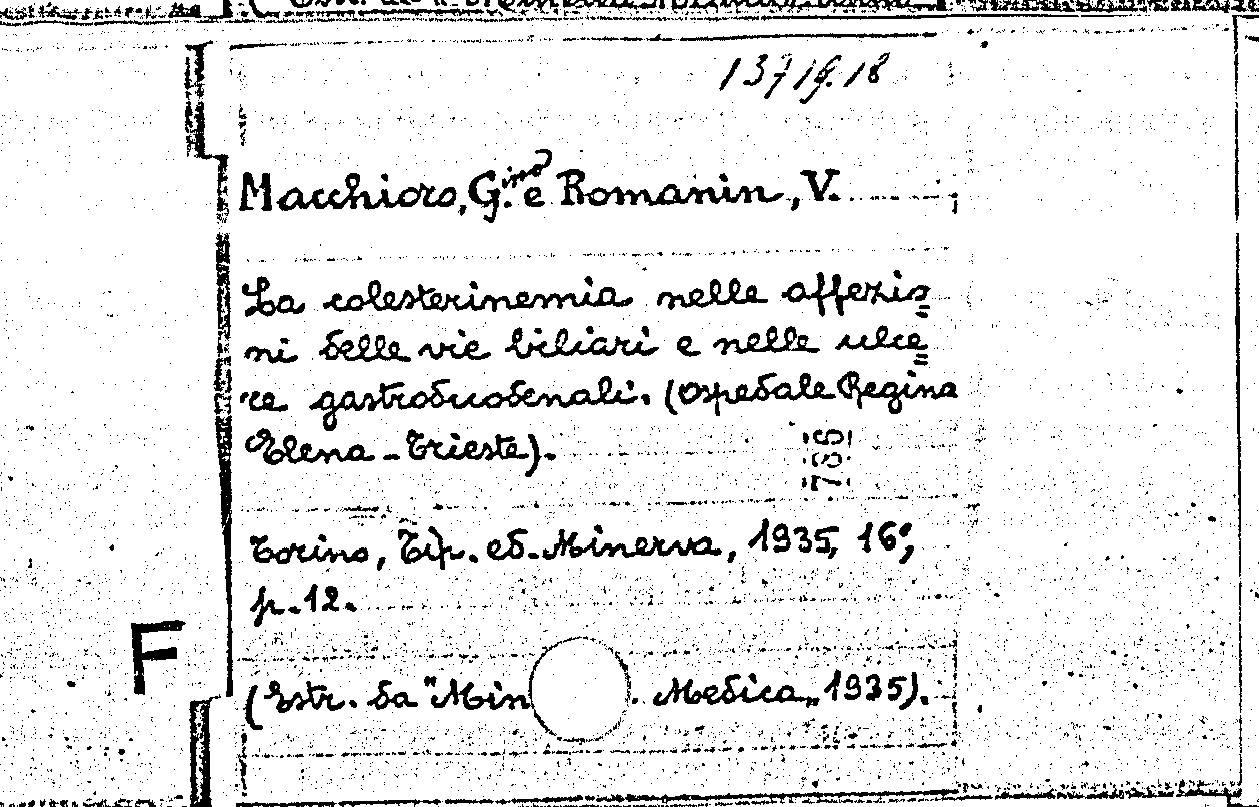 13719.18
Macchioro, G.ino e Romanin, V.
La colesterinemia nelle affezio=
ni delle vie biliari e nelle ulce=
re gastroduodenali. (Ospedale Regina
Elena - Trieste).
Torino, Tip. ed. Minerva, 1935, 16°,
p. 12.
F
(Estr. da "Min . Medica„ 1935).